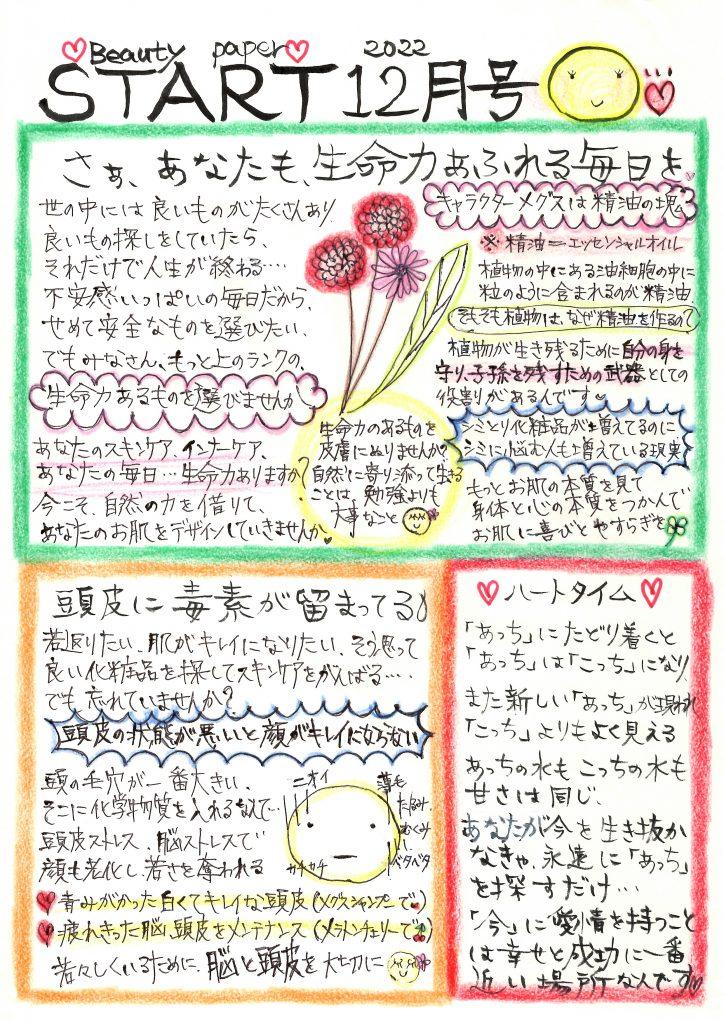 Beauty paper 2022
START 12月号
さぁ、あなたも、生命力あふれる毎日を
世の中には良いものがたくさんあり
良いもの探しをしていたら、
それだけで人生が終わる…
不安感いっぱいの毎日だから、
せめて安全なものを選びたい、
でもみなさん、もっと上のランクの、
生命力あるものを選びませんか
あなたのスキンケア、インナーケア、
あなたの毎日…生命力ありますか?
今こそ、自然の力を借りて、
あなたのお肌をデザインしていきませんか
生命力のあるものを
皮膚にぬりませんか?
自然に寄り添って生きる
ことは、勉強よりも
大事なこと
キャラクターメグスは精油の塊
※精油=エッセンシャルオイル
植物の中にある油細胞の中に
粒のように含まれるのが精油
そもそも植物は、なぜ精油を作るの?
植物が生き残るために自分の身を
守り、子孫を残すための武器としての
役割りがあるんです
シミとり化粧品が増えてるのに
シミに悩む人も増えている現実
もっとお肌の本質を見て
身体と心の本質をつかんで
お肌に喜びとやすらぎを
頭皮に毒素が留まってる
若返りたい、肌がキレイになりたい、そう思って
良い化粧品を探してスキンケアをがんばる‥‥
でも忘れていませんか?
頭皮の状態が悪いと顔がキレイにならない
頭の毛穴が一番大きい、
そこに化学物質を入れるなんて…
頭皮ストレス、脳ストレスで
顔も老化し、若さを奪われる
ニオイ
薄毛
たるみ
むくみ
ベタベタ
カチカチ
青みがかった白くてキレイな頭皮(メグスシャンプーで)
疲れきった脳、頭皮をメンテナンス(メラトンチェリーで)
若々しくいるために、脳と頭皮を大切に
ハートタイム
「あっち」にたどり着くと
「あっち」は「こっち」になり
また新しい「あっち」が現われ
「こっち」よりもよく見える
あっちの水もこっちの水も
甘さは同じ、
あなたが今を生き抜か
なきゃ、永遠に「あっち」
を探すだけ…
「今」に愛情を持つこと
は幸せと成功に一番
近い場所なんです